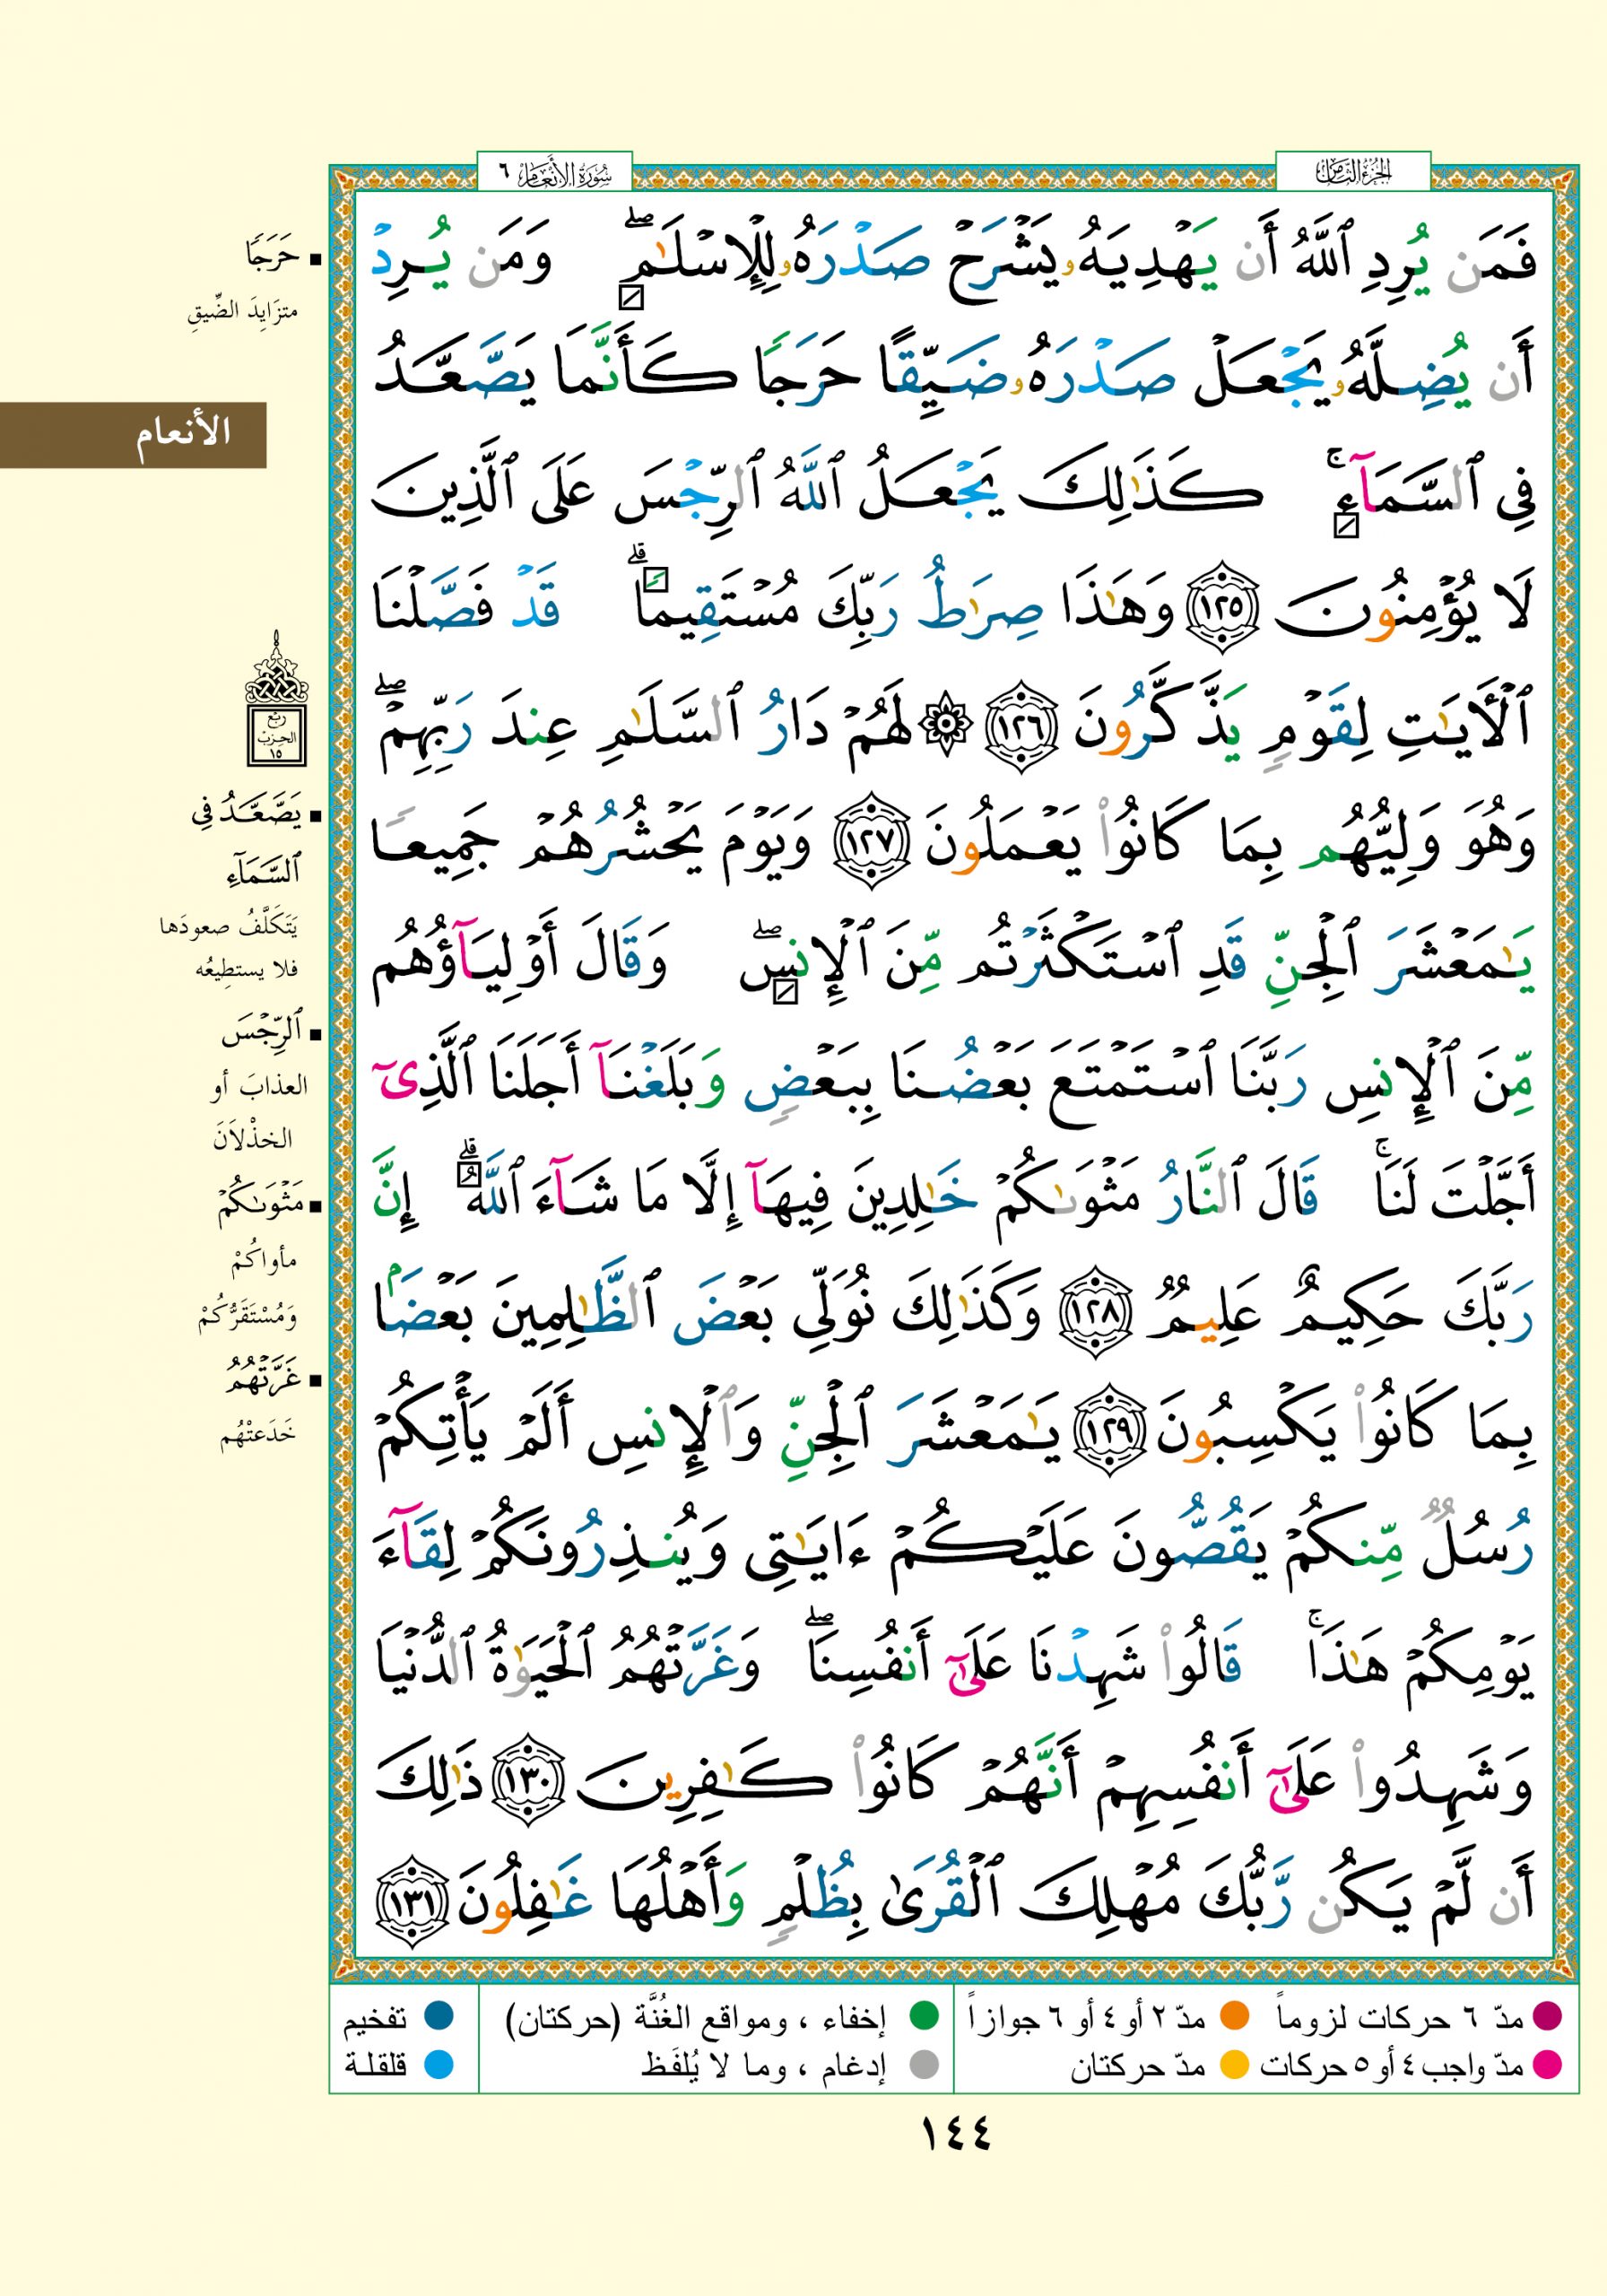 الجزء الثامن
سورة الأنعام ٦
فَمَن يُرِدِ ٱللَّهُ أَن يَهْدِيَهُۥ يَشْرَحْ صَدْرَهُۥ لِلْإِسْلَٰمِ ۖ وَمَن يُرِدْ
أَن يُضِلَّهُۥ يَجْعَلْ صَدْرَهُۥ ضَيِّقًا حَرَجًا كَأَنَّمَا يَصَّعَّدُ
فِى ٱلسَّمَآءِ ۚ كَذَٰلِكَ يَجْعَلُ ٱللَّهُ ٱلرِّجْسَ عَلَى ٱلَّذِينَ
لَا يُؤْمِنُونَ ١٢٥ وَهَٰذَا صِرَٰطُ رَبِّكَ مُسْتَقِيمًا ۗ قَدْ فَصَّلْنَا
ٱلْءَايَٰتِ لِقَوْمٍ يَذَّكَّرُونَ ١٢٦ ۞ لَهُمْ دَارُ ٱلسَّلَٰمِ عِندَ رَبِّهِمْ ۖ
وَهُوَ وَلِيُّهُم بِمَا كَانُوا۟ يَعْمَلُونَ ١٢٧ وَيَوْمَ يَحْشُرُهُمْ جَمِيعًا
يَٰمَعْشَرَ ٱلْجِنِّ قَدِ ٱسْتَكْثَرْتُم مِّنَ ٱلْإِنسِ ۖ وَقَالَ أَوْلِيَآؤُهُم
مِّنَ ٱلْإِنسِ رَبَّنَا ٱسْتَمْتَعَ بَعْضُنَا بِبَعْضٍ وَبَلَغْنَآ أَجَلَنَا ٱلَّذِىٓ
أَجَّلْتَ لَنَا ۚ قَالَ ٱلنَّارُ مَثْوَىٰكُمْ خَٰلِدِينَ فِيهَآ إِلَّا مَا شَآءَ ٱللَّهُ ۗ إِنَّ
رَبَّكَ حَكِيمٌ عَلِيمٌ ١٢٨ وَكَذَٰلِكَ نُوَلِّى بَعْضَ ٱلظَّٰلِمِينَ بَعْضًۢا
بِمَا كَانُوا۟ يَكْسِبُونَ ١٢٩ يَٰمَعْشَرَ ٱلْجِنِّ وَٱلْإِنسِ أَلَمْ يَأْتِكُمْ
رُسُلٌ مِّنكُمْ يَقُصُّونَ عَلَيْكُمْ ءَايَٰتِى وَيُنذِرُونَكُمْ لِقَآءَ
يَوْمِكُمْ هَٰذَا ۚ قَالُوا۟ شَهِدْنَا عَلَىٰٓ أَنفُسِنَا ۖ وَغَرَّتْهُمُ ٱلْحَيَوٰةُ ٱلدُّنْيَا
وَشَهِدُوا۟ عَلَىٰٓ أَنفُسِهِمْ أَنَّهُمْ كَانُوا۟ كَٰفِرِينَ ١٣٠ ذَٰلِكَ
أَن لَّمْ يَكُن رَّبُّكَ مُهْلِكَ ٱلْقُرَىٰ بِظُلْمٍ وَأَهْلُهَا غَٰفِلُونَ ١٣١
حَرَجًا
متزَايِدَ الضِّيقِ
الأنعام
ربع
الحزب
١٥
يَصَّعَّدُ فِى
ٱلسَّمَآءِ
يَتَكَلَّفُ صعودَها
فلا يستطِيعُه
ٱلرِّجْسَ
العذابَ أو
الخذْلاَنَ
مَثْوَىٰكُمْ
مأواكُمْ
وَمُسْتَقَرُّكُمْ
غَرَّتْهُمُ
خَدَعتْهُم
مدّ ٦ حركات لزوماً
مدّ ٢ أو ٤ أو ٦ جوازاً
إخفاء ، ومواقع الغُنَّة (حركتان)
تفخيم
مدّ واجب ٤ أو ٥ حركات
مدّ حركتان
إدغام ، وما لا يُلفَظ
قلقلة
١٤٤